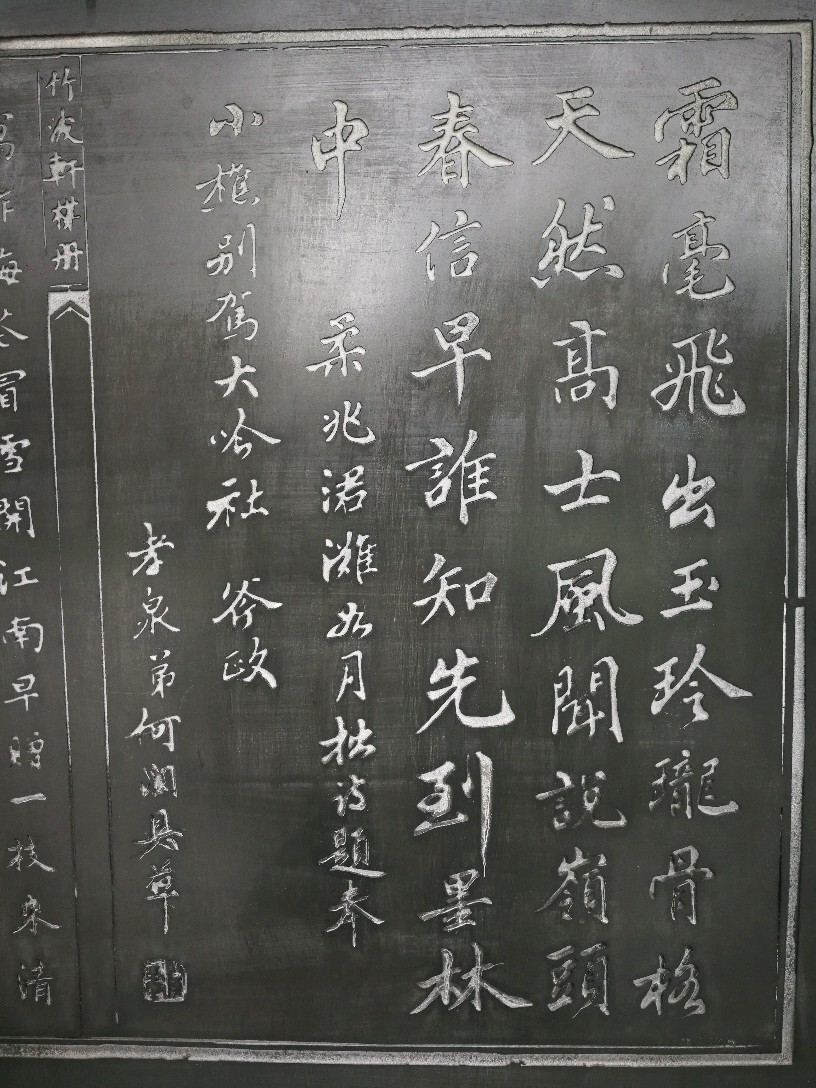 霜毫飛出玉玲瓏骨格
天然高士風聞說嶺頭
春信早誰知先到墨林
中
柔兆涒灘如月拙詩題奉
小樵别駕大吟社 斧政
孝泉弟何潤具草
竹波軒某册
寫作海冬冒雪開江南早贈一枝來清